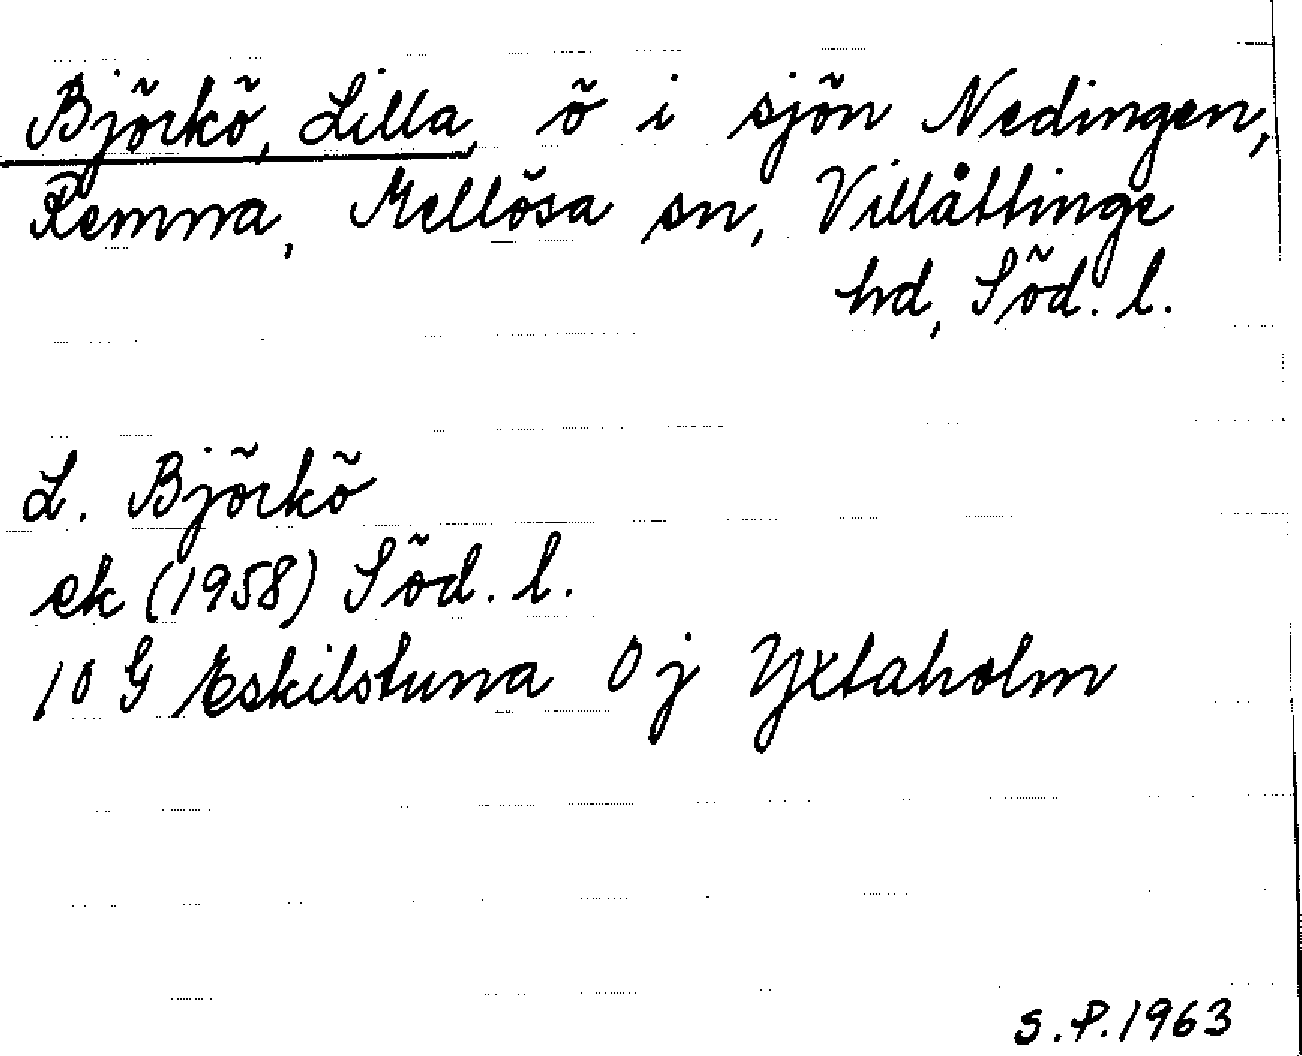 Björkö, Lilla, ö i sjön Nedingen,
Remna, Mellösa sn, Villåttinge
hd, Söd. l.
L. Björkö
ek (1958) Söd. l.
10 G Eskilstuna 0 j Yxtaholm
S.P.1963